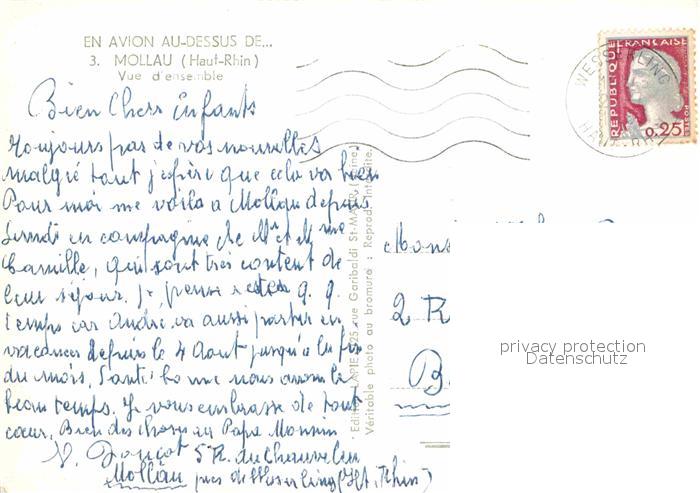 EN AVION AU-DESSUS DE...
3. MOLLAU (Haut-Rhin)
Vue d'ensemble
Bien Chers Enfants
Toujours pas de vos nouvelles
malgré tout j'espère que cela va bien
Pour moi me voila a Mollau depuis
Lundi en compagnie de Mr et Mme
Camille, qui sont très content de
leur séjour. je pense rester q. q.
temps car André va aussi partir en
vacances depuis le 4 Aout jusqu'à la fin
du mois. Santé bonne nous avons le
beau temps. Je vous embrasse de tout
cœur. Bien des choses au Papa
5 R. du
Mollau près de Wesserling (Ht. Rhin)
Editions LAPIE, 25, rue Garibaldi St-MAUR (Seine)
Véritable photo au bromure : Reprod. Interdite.
REPUBLIQUE FRANÇAISE
0,25
WESSERLING
HAUT-RHIN
Mons
2 R
B
privacy protection
Datenschutz